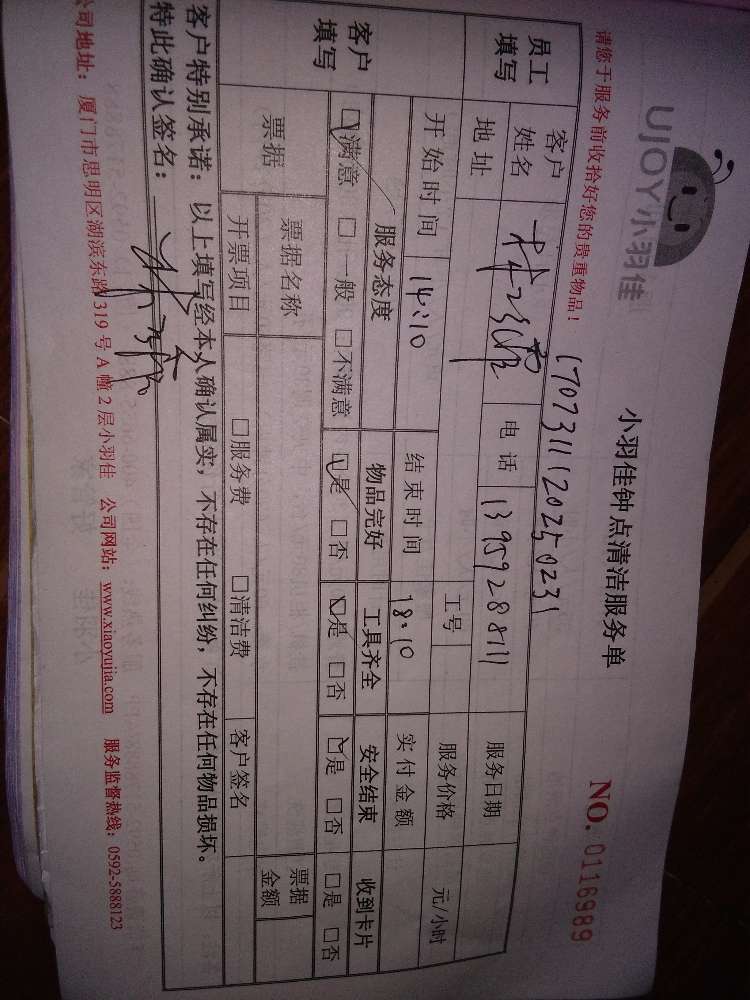 UJOY小羽佳
小羽佳钟点清洁服务单
NO. 0116989
请您于服务前收拾好您的贵重物品！
员工填写 客户姓名 电话 13959288111 服务日期
地址 工号 服务价格 元/小时
客户填写 开始时间 14:10 结束时间 18:10 实付金额
服务态度 物品完好 工具齐全 安全结束 收到卡片
☑满意 □一般 □不满意 ☑是 □否 ☑是 □否 ☑是 □否 □是 □否
票据 票据名称 票据金额
开票项目 □服务费 □清洁费 客户签名
客户特别承诺：以上填写经本人确认属实，不存在任何纠纷，不存在任何物品损坏。
特此确认签名：
公司地址：厦门市思明区湖滨东路319号A幢2层小羽佳 公司网站：www.xiaoyujia.com 服务监督热线：0592-5888123